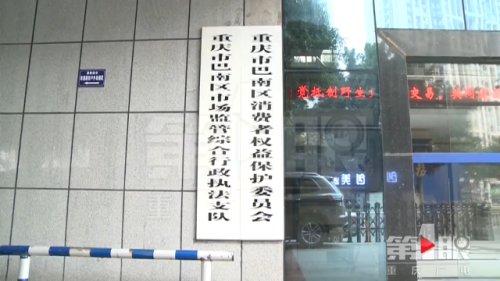 重庆市巴南区消费者权益保护委员会
重庆市巴南区市场监管综合行政执法支队
觉抵制野生
交易，
第1眼
重庆广电